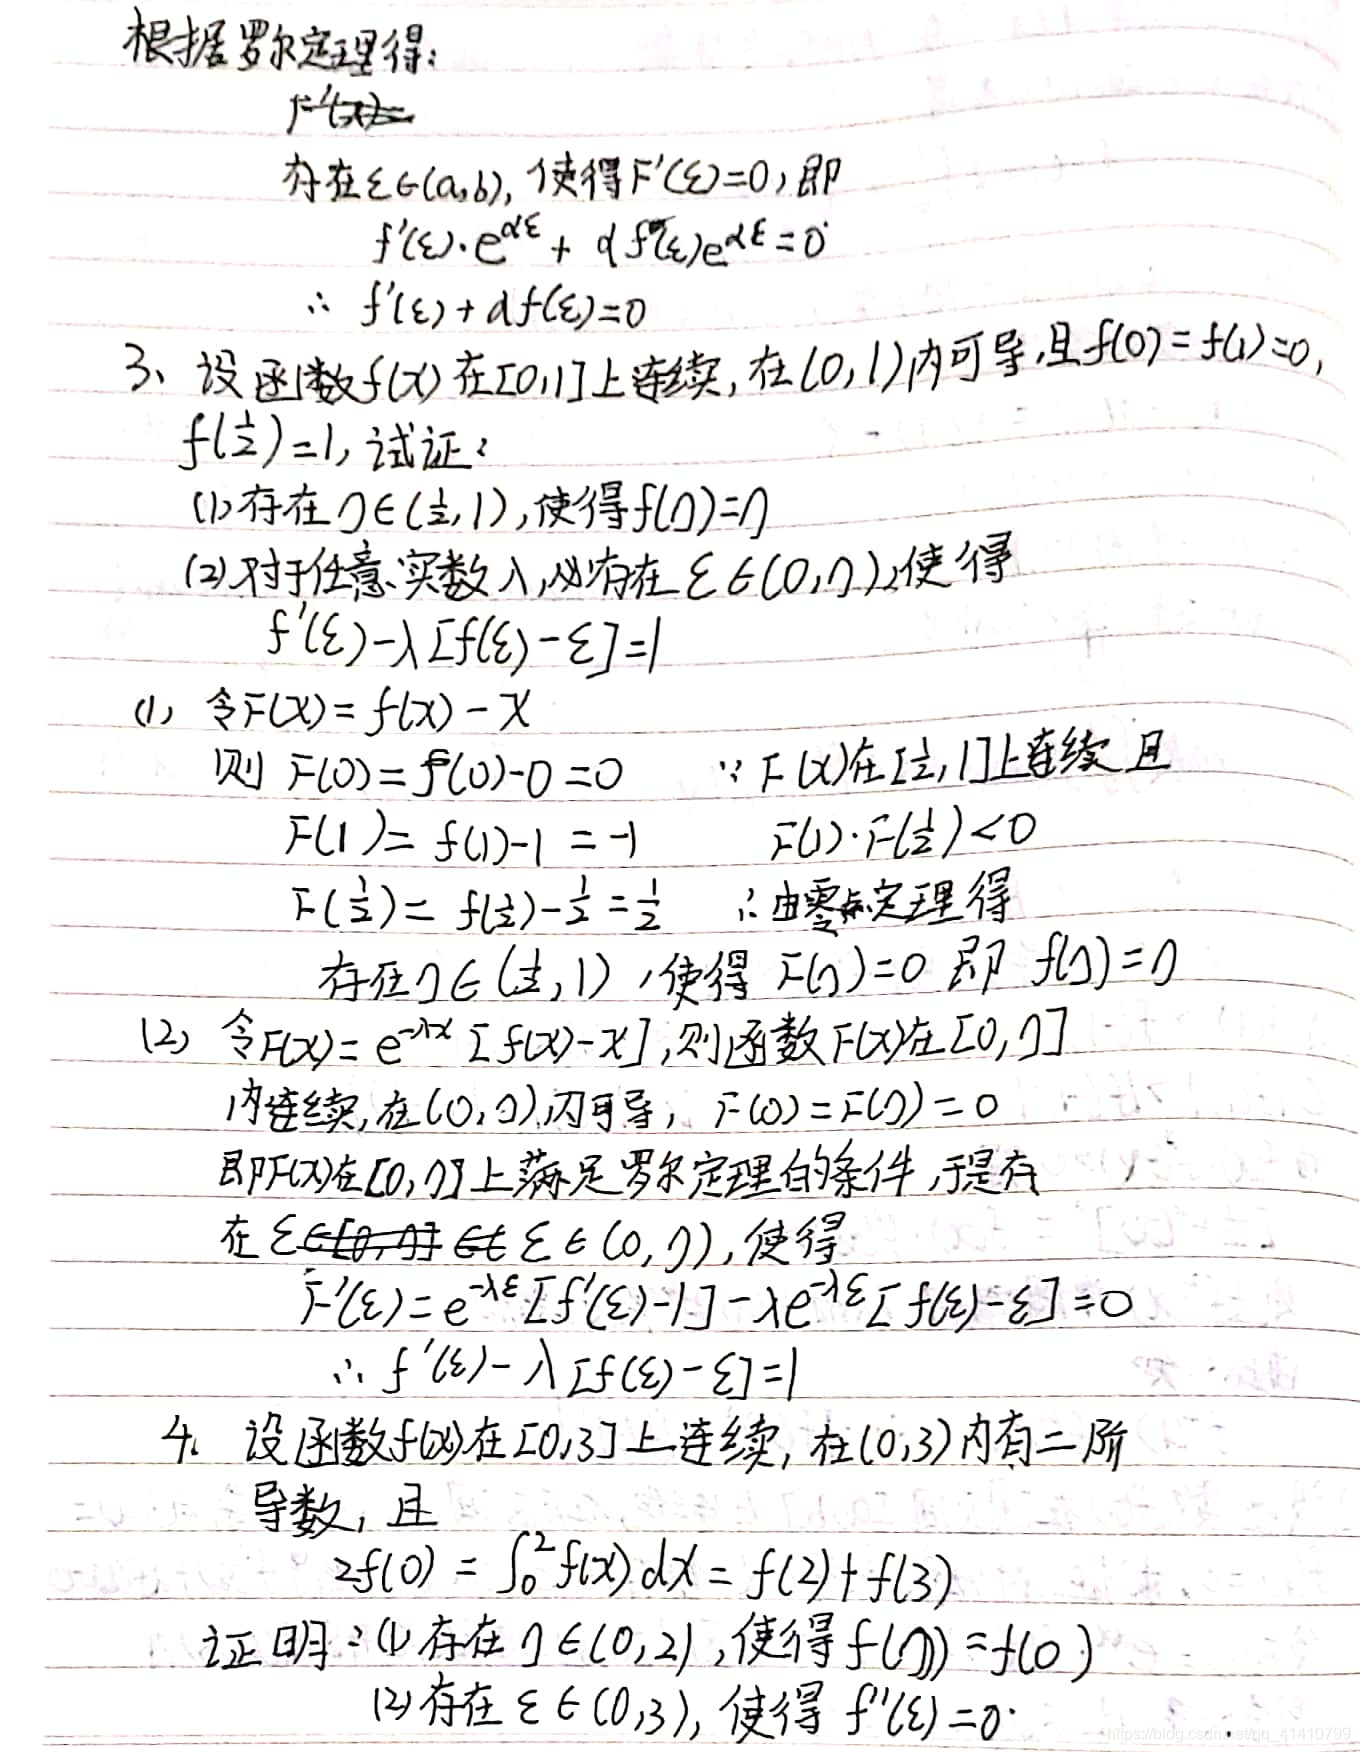 根据罗尔定理得:
F'(x)=
存在ξ∈(a,b), 使得F'(ξ)=0, 即
f'(ξ)·e^{αξ} + αf(ξ)e^{αξ}=0
∴ f'(ξ)+αf(ξ)=0
3、设函数f(x)在[0,1]上连续,在(0,1)内可导,且f(0)=f(1)=0,
f(1/2)=1, 试证:
(1)存在η∈(1/2,1),使得f(η)=η
(2)对于任意实数λ,必存在ξ∈(0,η),使得
f'(ξ)-λ[f(ξ)-ξ]=1
(1) 令F(x)=f(x)-x
则 F(0)=f(0)-0=0 ∵ F(x)在[1/2,1]上连续且
F(1)=f(1)-1=-1 F(1)·F(1/2)<0
F(1/2)=f(1/2)-1/2=1/2 ∴由零点定理得
存在η∈(1/2,1),使得 F(η)=0 即 f(η)=η
(2) 令F(x)=e^{-λx}[f(x)-x],则函数F(x)在[0,η]
内连续,在(0,η)内可导, F(0)=F(η)=0
即F(x)在[0,η]上满足罗尔定理的条件,于是存
在 ξ∈[0,η] ∈( ξ∈(0,η),使得
F'(ξ)=e^{-λξ}·[f'(ξ)-1]-λe^{-λξ}[f(ξ)-ξ]=0
∴ f'(ξ)-λ[f(ξ)-ξ]=1
4. 设函数f(x)在[0,3]上连续,在(0,3)内有二阶
导数,且
2f(0)=∫₀²f(x)dx=f(2)+f(3)
证明:(1)存在η∈(0,2),使得f(η)=f(0)
(2)存在ξ∈(0,3),使得 f''(ξ)=0.
https://blog.csdn.net/qq_41410799